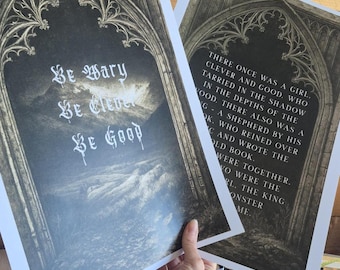 Be Wary
Be Clever
Be Good
THERE ONCE WAS A GIRL,
CLEVER AND GOOD, WHO
TARRIED IN THE SHADOW
IN THE DEPTHS OF THE
OOD. THERE ALSO WAS A
G - A SHEPHERD BY HIS
OK, WHO REINED OVER
E AND WROTE THE
OLD BOOK.
WERE TOGETHER,
O WERE THE
L, THE KING
ONSTER
ME.